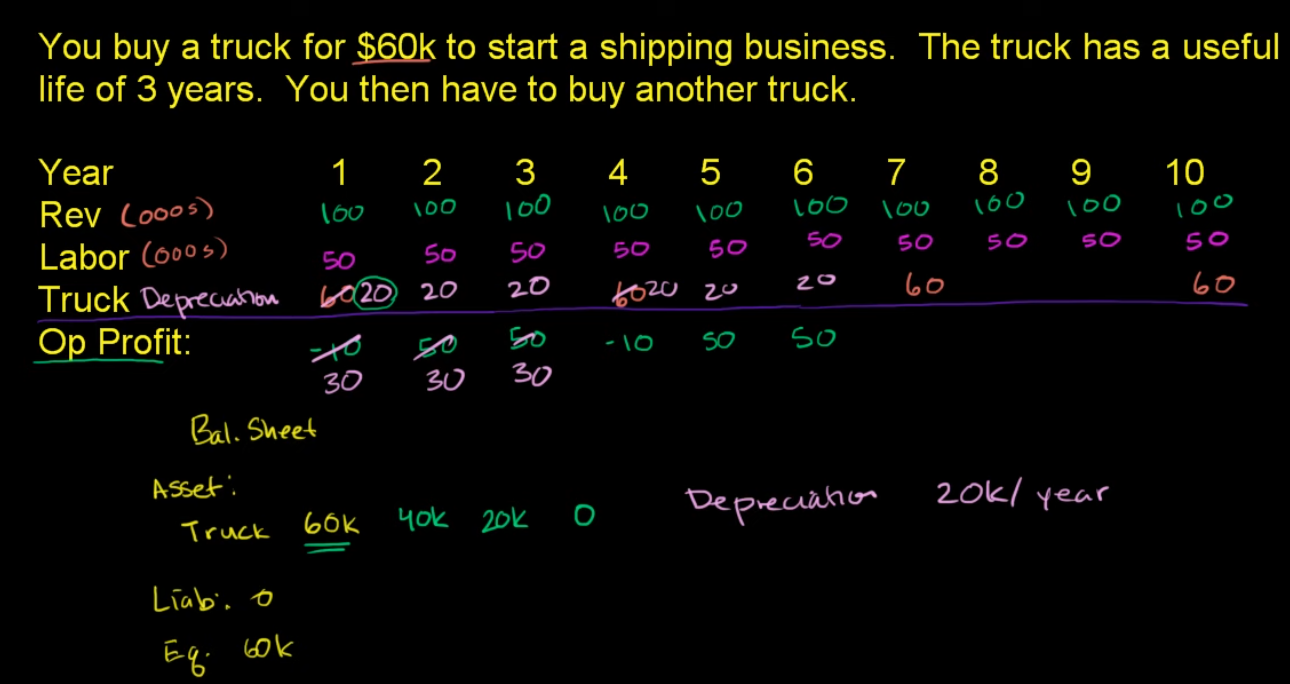 You buy a truck for $60k to start a shipping business. The truck has a useful
life of 3 years. You then have to buy another truck.
Year 1 2 3 4 5 6 7 8 9 10
Rev (000s) 100 100 100 100 100 100 100 100 100 100
Labor (000s) 50 50 50 50 50 50 50 50 50 50
Truck Depreciation 60 20 20 20 60 20 20 20 60 60
Op Profit: -10 50 50 -10 50 50
30 30 30
Bal. Sheet
Asset:
Truck 60k 40k 20k 0
Depreciation 20k/year
Liab: 0
Eq. 60k